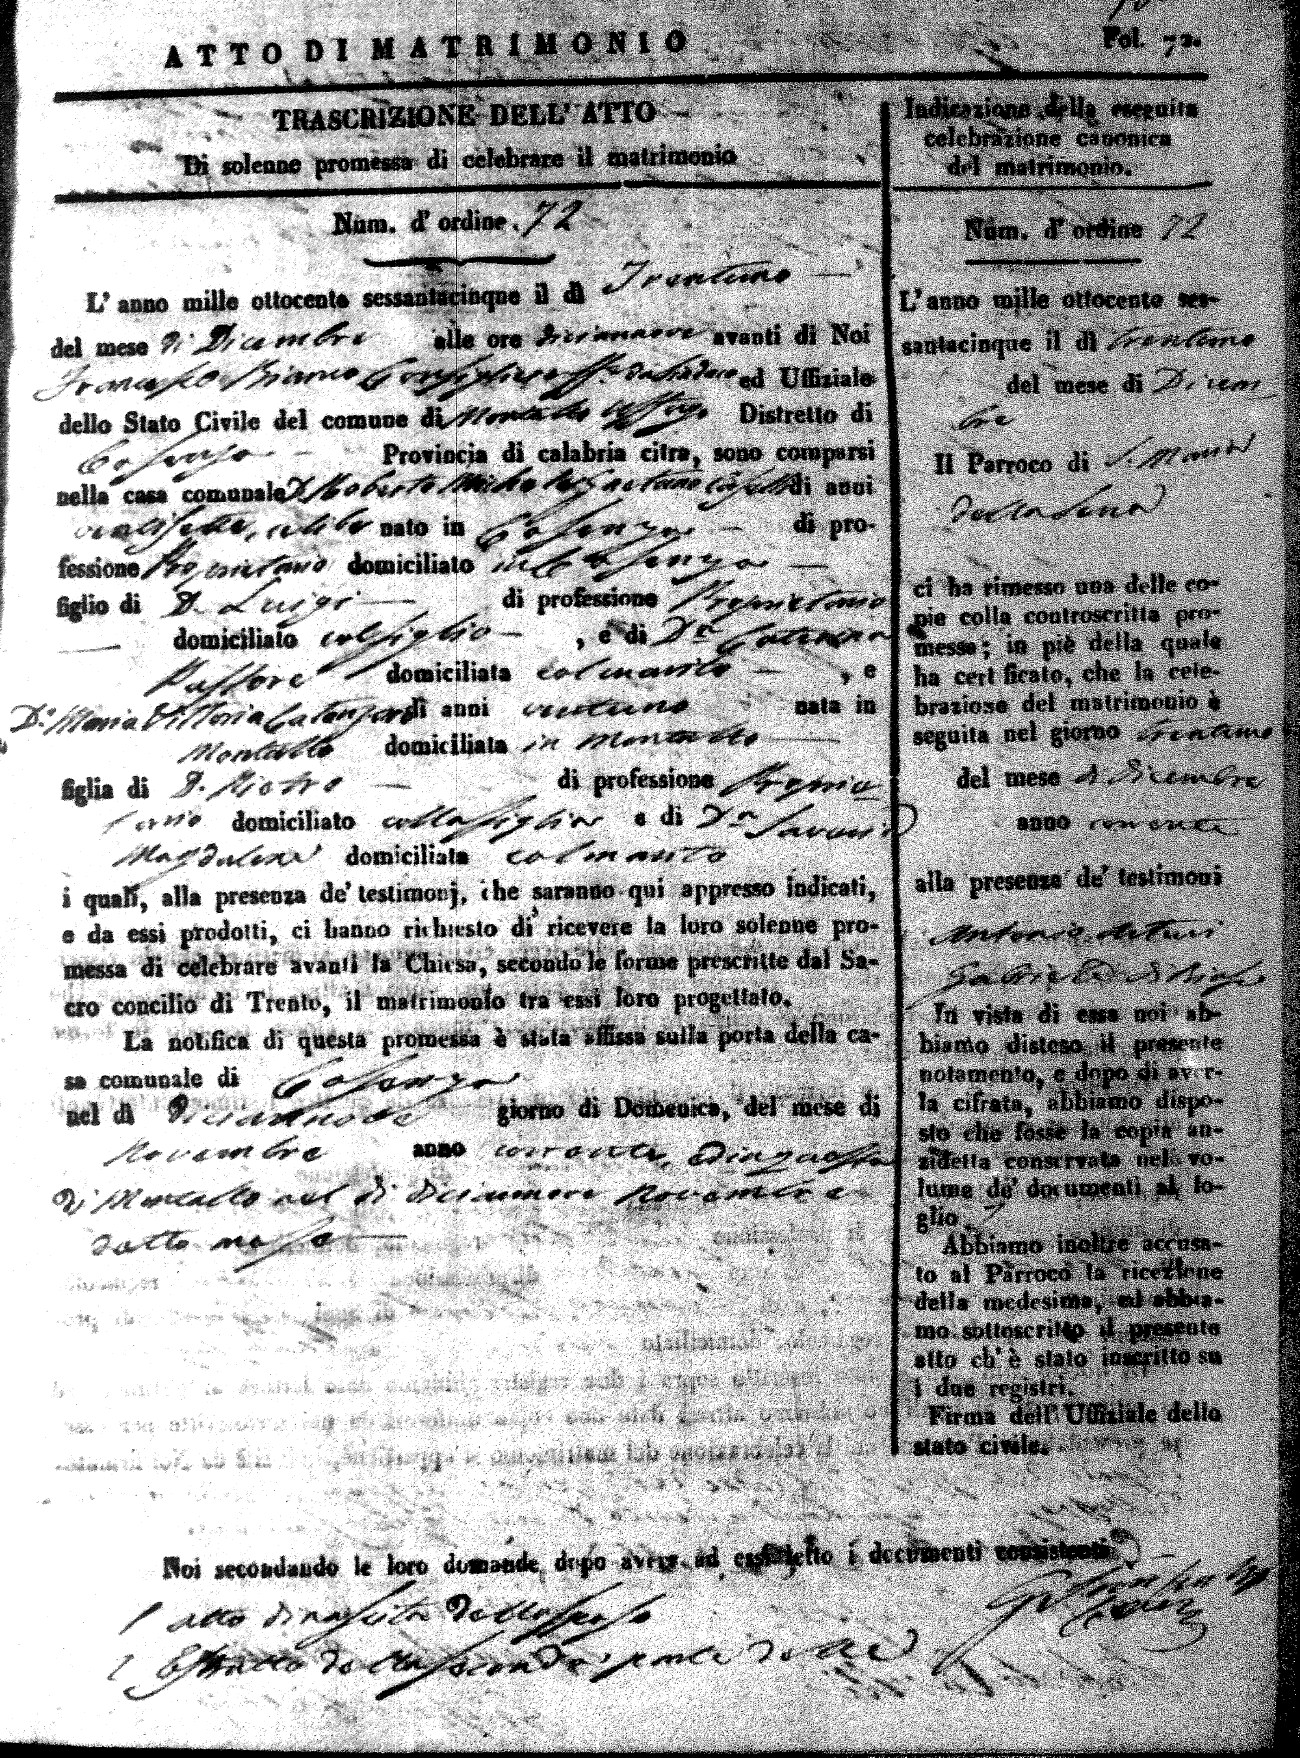 ATTO DI MATRIMONIO
Fol. 72.
TRASCRIZIONE DELL' ATTO
Di solenne promessa di celebrare il matrimonio
Num. d' ordine. 72
L' anno mille ottocento sessantacinque il dì Trentuno
del mese di Dicembre alle ore diciannove avanti di Noi
Francesco Bianco Consigliere ff. da Sindaco ed Uffiziale
dello Stato Civile del comune di Montalto Uffugo Distretto di
Cosenza Provincia di calabria citra, sono comparsi
nella casa comunale D. Roberto Michele Gaetano di anni
ventisette, celibe nato in Cosenza di pro-
fessione Proprietario domiciliato in Cosenza
figlio di D. Luigi di professione Proprietario
domiciliato col figlio , e di D.a Caterina
Passore domiciliata col marito , e
D.a Maria Vittoria Catanzaro di anni ventuno nata in
Montalto domiciliata in Montalto
figlia di D. Pietro di professione Proprie
tario domiciliato colla figlia e di D.a Saveria
Magdalena domiciliata col marito
i quali, alla presenza de' testimonj, che saranno qui appresso indicati,
e da essi prodotti, ci hanno richiesto di ricevere la loro solenne pro-
messa di celebrare avanti la Chiesa, secondo le forme prescritte dal Sa-
cro concilio di Trento, il matrimonio tra essi loro progettato.
La notifica di questa promessa è stata affissa sulla porta della ca-
sa comunale di Cosenza
nel dì Diciannove giorno di Domenica, del mese di
Novembre anno corrente, ed in questa
di Montalto nel dì diciannove Novembre
detto mese
Noi secondando le loro domande dopo avere ad essi letto i documenti consistenti
1 atto di nascita dello sposo
2 Estratto della seconda parte delle
Indicazione della eseguita
celebrazione canonica
del matrimonio.
Num. d' ordine 72
L' anno mille ottocento ses-
santacinque il dì trentuno
del mese di Dicem
bre
Il Parroco di S. Maria
della Serra
ci ha rimesso una delle co-
pie colla controscritta pro-
messa; in piè della quale
ha certificato, che la cele-
brazione del matrimonio è
seguita nel giorno trentuno
del mese di dicembre
anno corrente
alla presenza de' testimoni
Antonio Arturi
Gabriele di Biase
In vista di essa noi ab-
biamo disteso il presente
notamento, e dopo di aver-
la cifrata, abbiamo dispo-
sto che fosse la copia an-
zidetta conservata nel vo-
lume de' documenti al fo-
glio
Abbiamo inoltre accusa-
to al Parroco la ricezione
della medesima, ed abbia-
mo sottoscritto il presente
atto ch' è stato inscritto su
i due registri.
Firma dell' Uffiziale dello
stato civile.